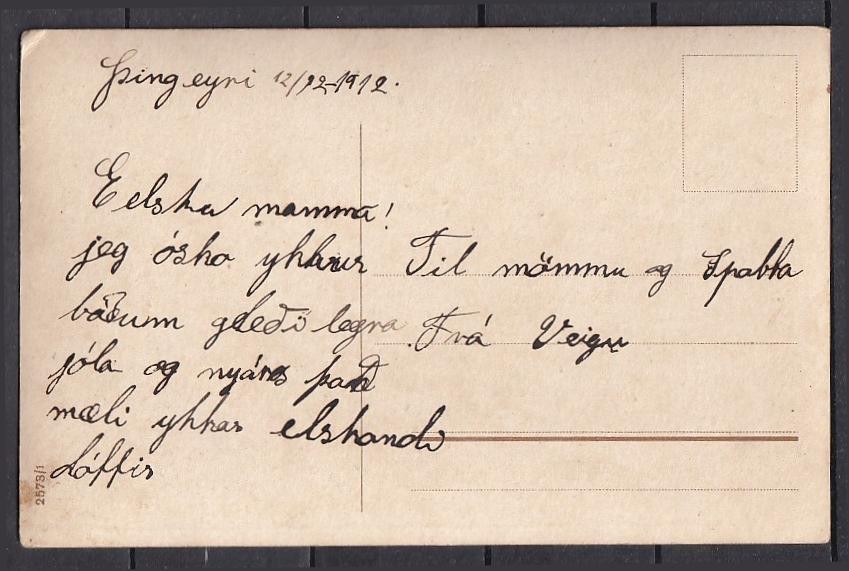 Þingeyri 12/12-1912.
Eelska mamma!
jeg óska ykkur
báðum gleðilegra
jóla og nyárs það
mæli ykkar elskandi
dóttir
Til mömmu og pabba
Frá Veigu
2573/1